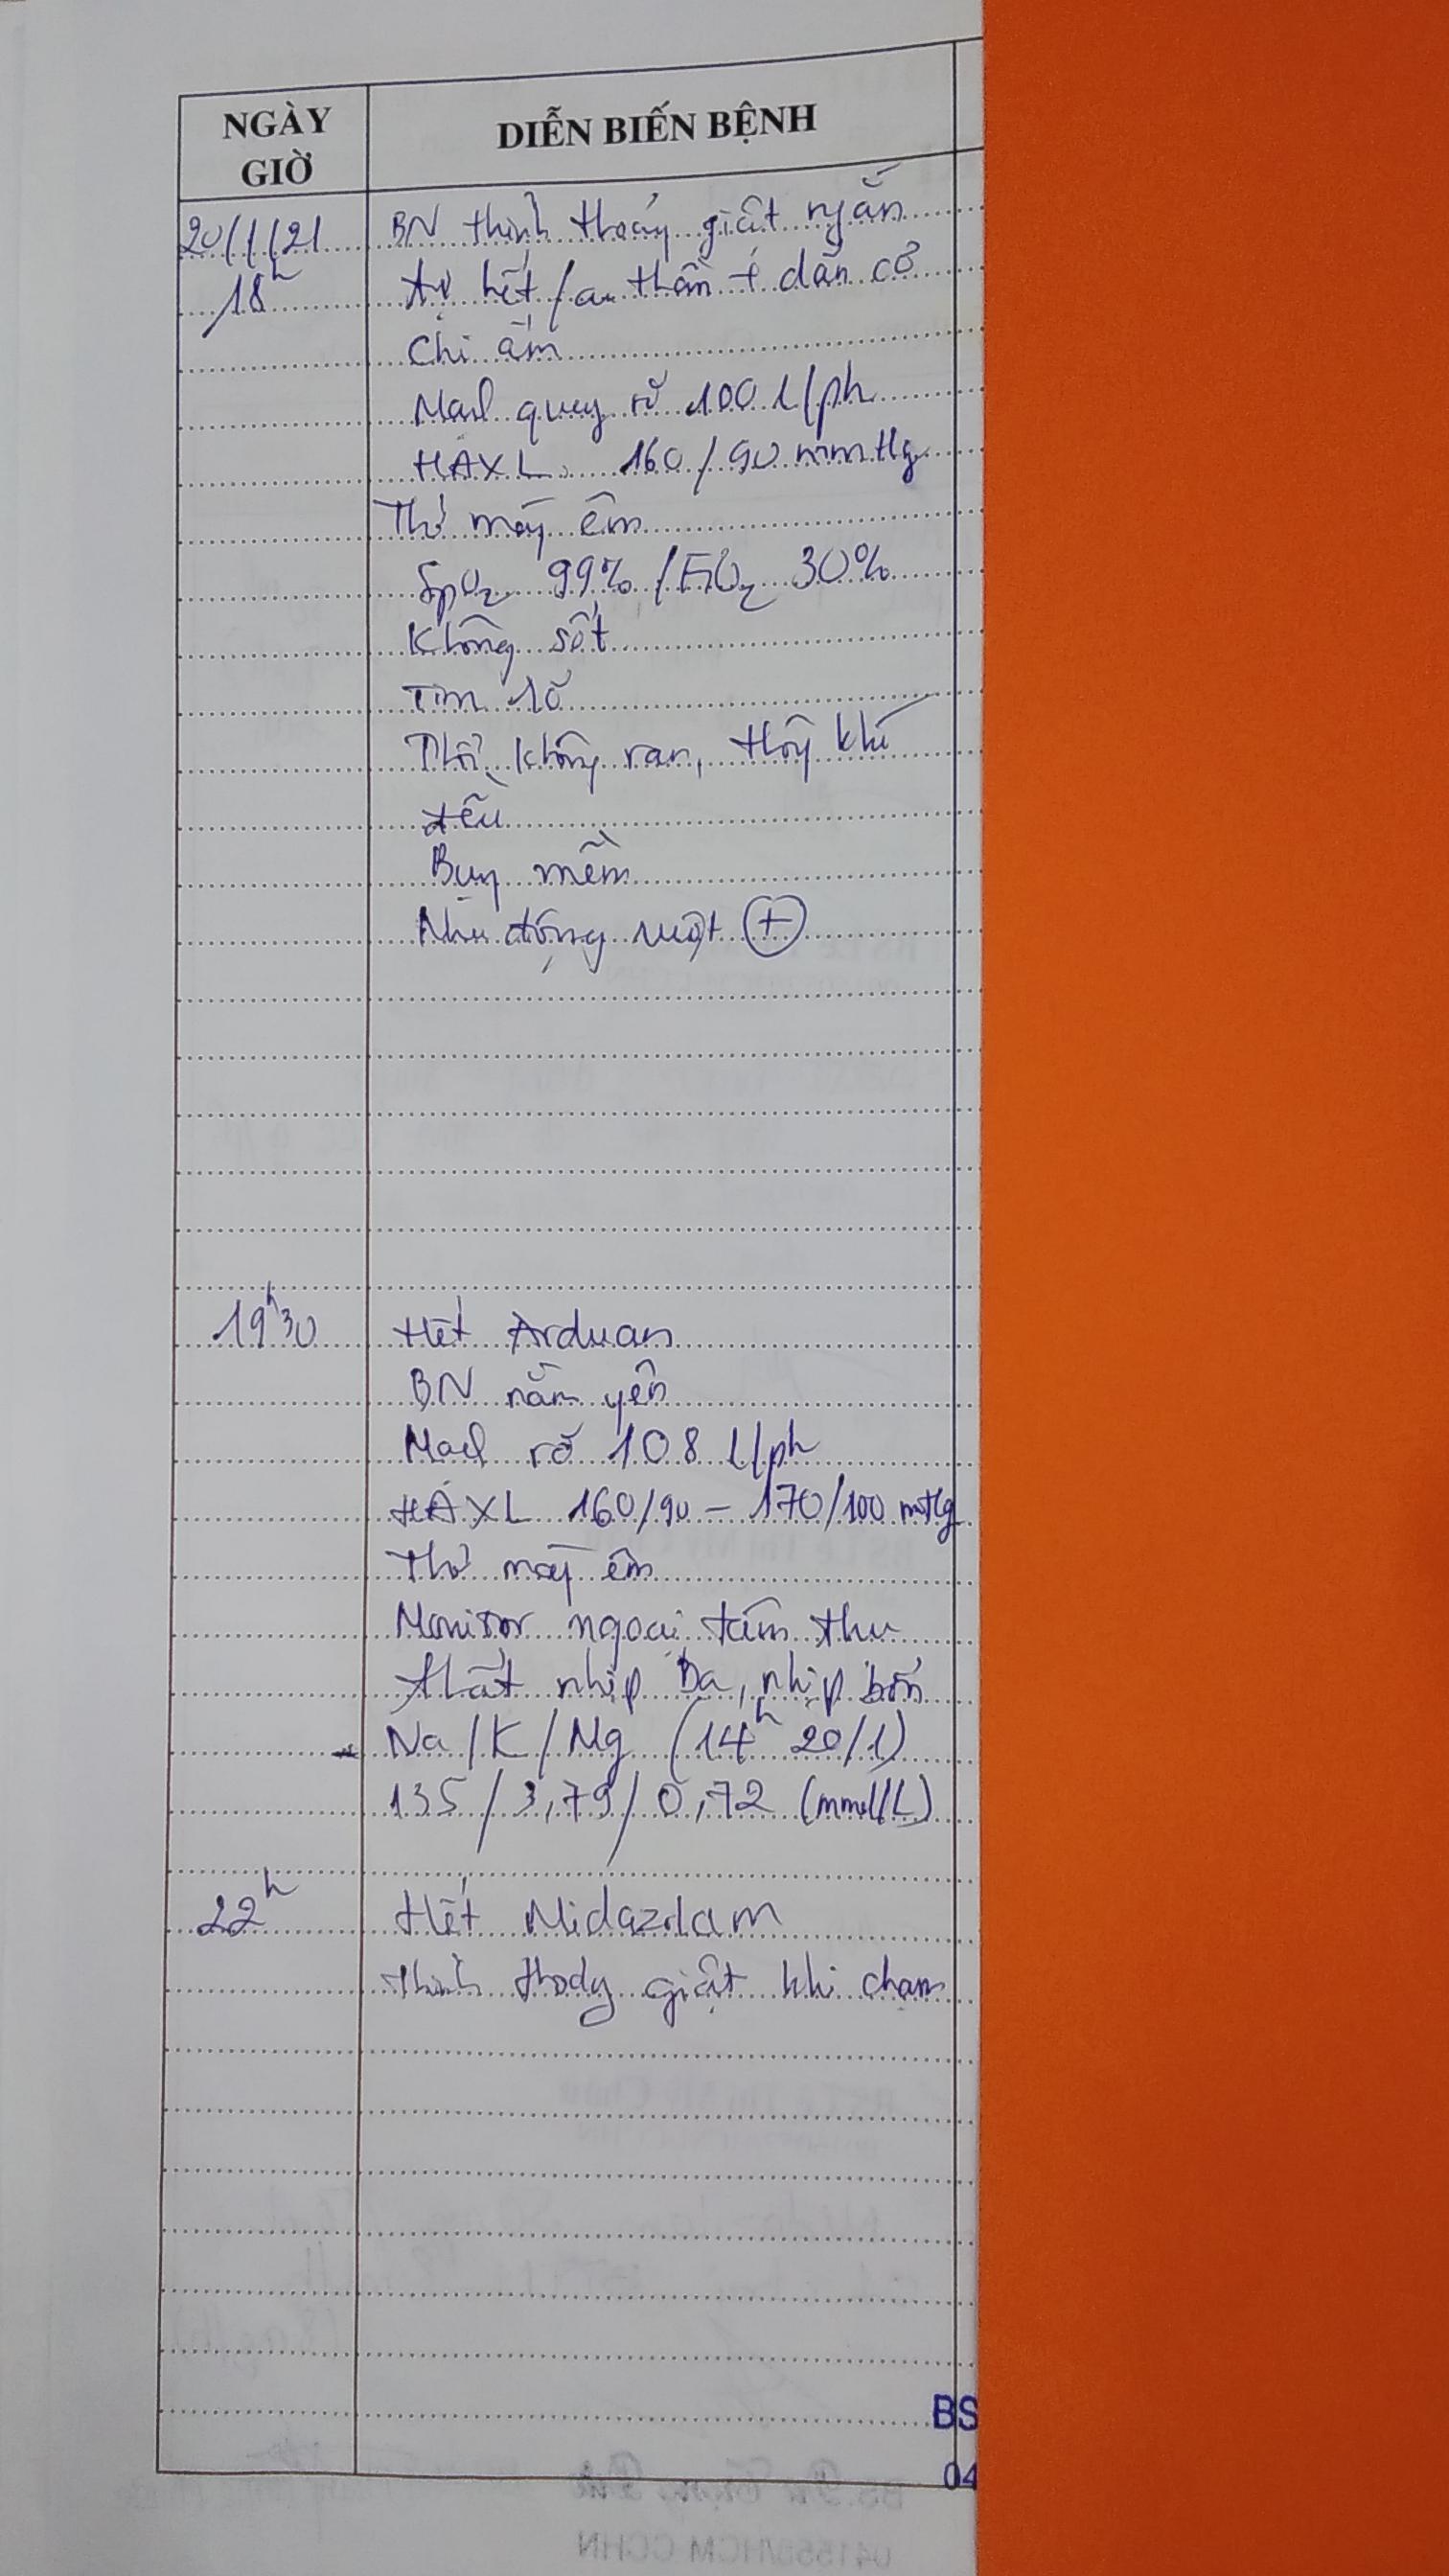 NGÀY GIỜ
DIỄN BIẾN BỆNH
20/1/21 BN thỉnh thoảng giật ngắn
18h tự hết / an thần + dãn cơ
Chi ấm
Mạch quay rõ 100 l/ph
HAXL 160/90 mmHg
Thở máy êm
SpO2 99% / FiO2 30%
Không sốt
Tim rõ
Phổi không ran, thông khí
đều
Bụng mềm
Nhu động ruột (+)
19h30 Hết Arduan
BN nằm yên
Mạch rõ 108 l/ph
HAXL 160/90 - 170/100 mmHg
Thở máy êm
Monitor ngoại tâm thu
thất nhịp ba, nhịp bốn
Na/K/Mg (14h 20/1)
135/3,79/0,72 (mmol/L)
22h Hết Midazolam
Thỉnh thoảng giật khi chạm
BS
04